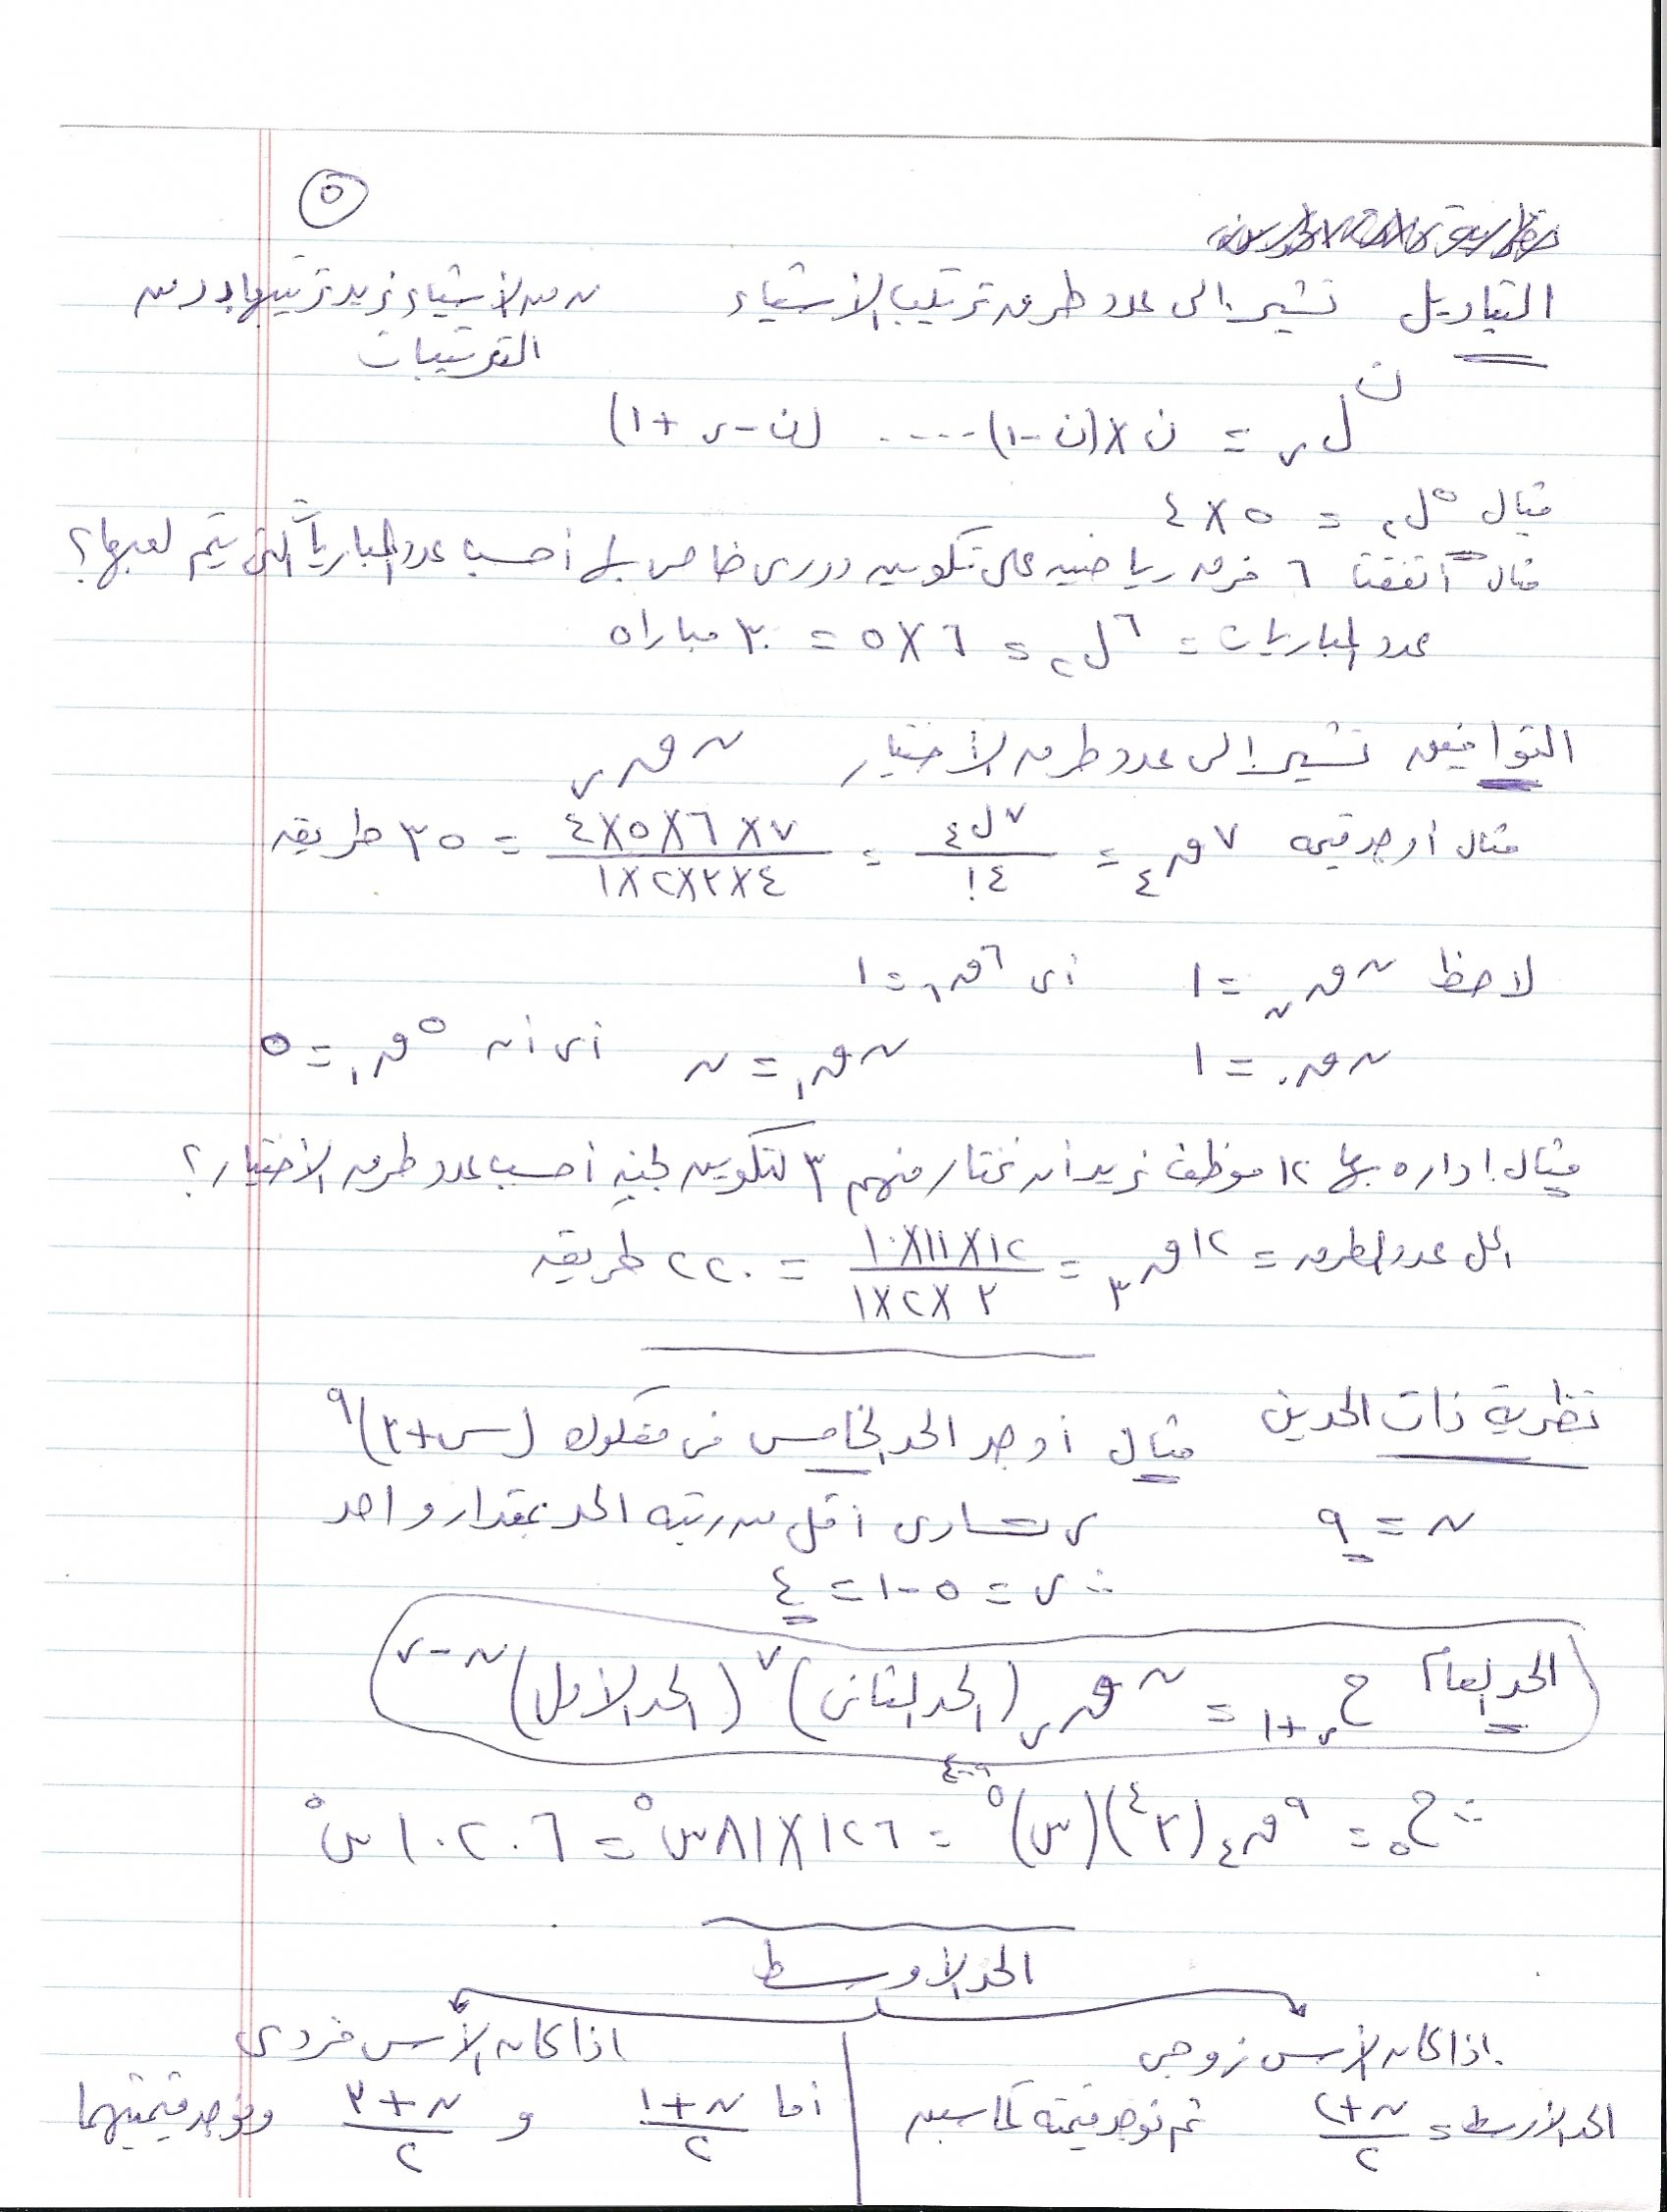 ٥
التباديل تشير إلى عدد طرق ترتيب الأشياء ن من الأشياء نريد ترتيبها ر من
الترتيبات
ن ل ر = ن × (ن - ١) .... (ن - ر + ١)
مثال ٥ ل ٢ = ٥ × ٤
مثال اتفقنا ٦ فرق رياضيه على تكوين دورى خاص بها أحسب عدد المباريات التى يتم لعبها؟
عدد المباريات = ٦ ل ٢ = ٦ × ٥ = ٣٠ مباراه
التوافيق تشير إلى عدد طرق الأختيار ن ق ر
مثال أوجد قيمه ٧ ق ٤ = ٧ ل ٤ / ٤! = ٧ × ٦ × ٥ × ٤ / ٤ × ٣ × ٢ × ١ = ٣٥ طريقه
لاحظ ن ق ن = ١ أى ٦ ق ٦ = ١
ن ق ٠ = ١ ن ق ١ = ن أى أن ٥ ق ١ = ٥
مثال إداره بها ١٢ موظف نريد أن نختار منهم ٣ لتكوين لجنه أحسب عدد طرق الأختيار؟
الحل عدد الطرق = ١٢ ق ٣ = ١٢ × ١١ × ١٠ / ٣ × ٢ × ١ = ٢٢٠ طريقه
نظرية ذات الحدين مثال أوجد الحد الخامس فى مفكوك (س + ٣)^٩
ن = ٩ ر تساوى أقل من رتبه الحد بمقدار واحد
∴ ر = ٥ - ١ = ٤
الحد العام ح ر+١ = ن ق ر (الحد الثانى)^ر (الحد الأول)^ن-ر
∴ ح ٥ = ٩ ق ٤ (٣^٤) (س)^٥ ٩-٤ = ١٢٦ × ٨١ س^٥ = ١٠٢٠٦ س^٥
الحد الأوسط
إذا كان الأس زوجى اذا كان الأس فردى
الحد الأوسط = ن + ٢ / ٢ ثم نوجد قيمته كما سبق أما ن + ١ / ٢ و ن + ٣ / ٢ ونوجد قيمتيهما